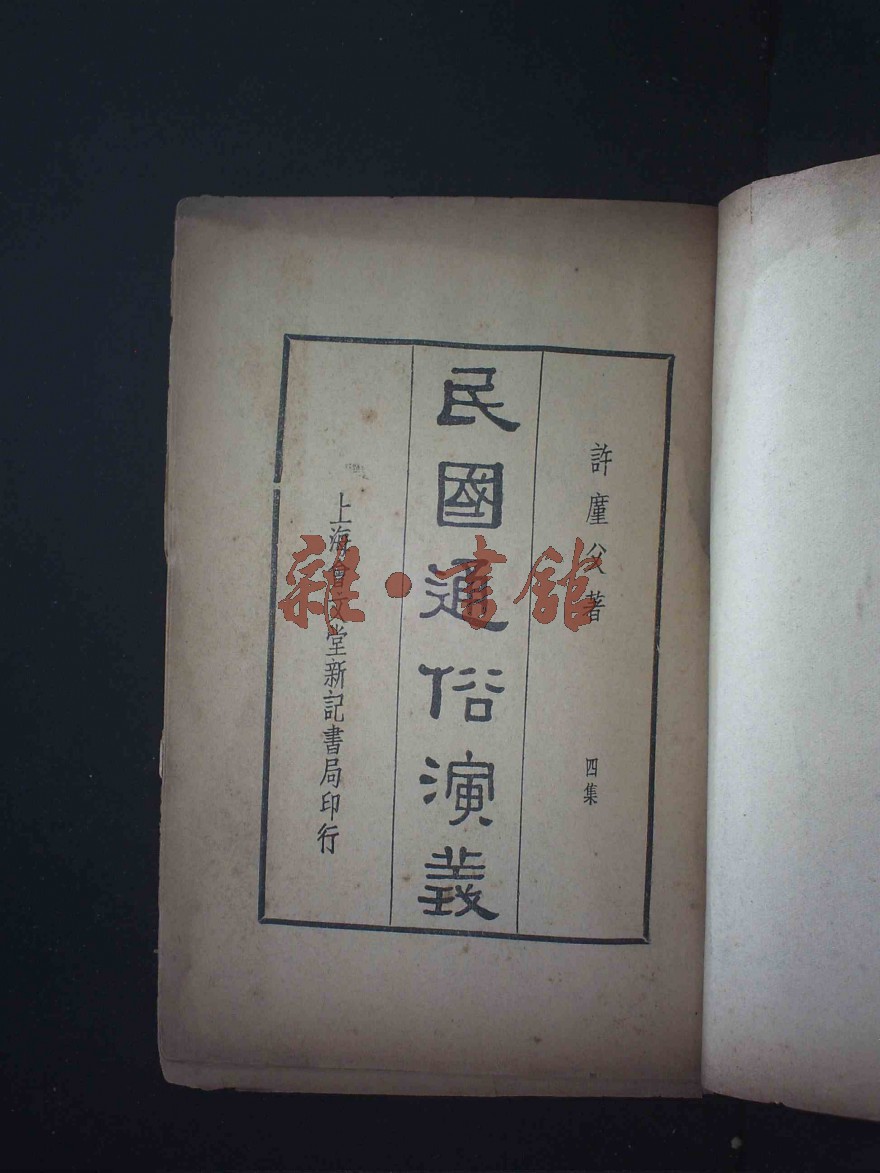 許廑父著
四集
民國通俗演義
上海會文堂新記書局印行
雜·書館